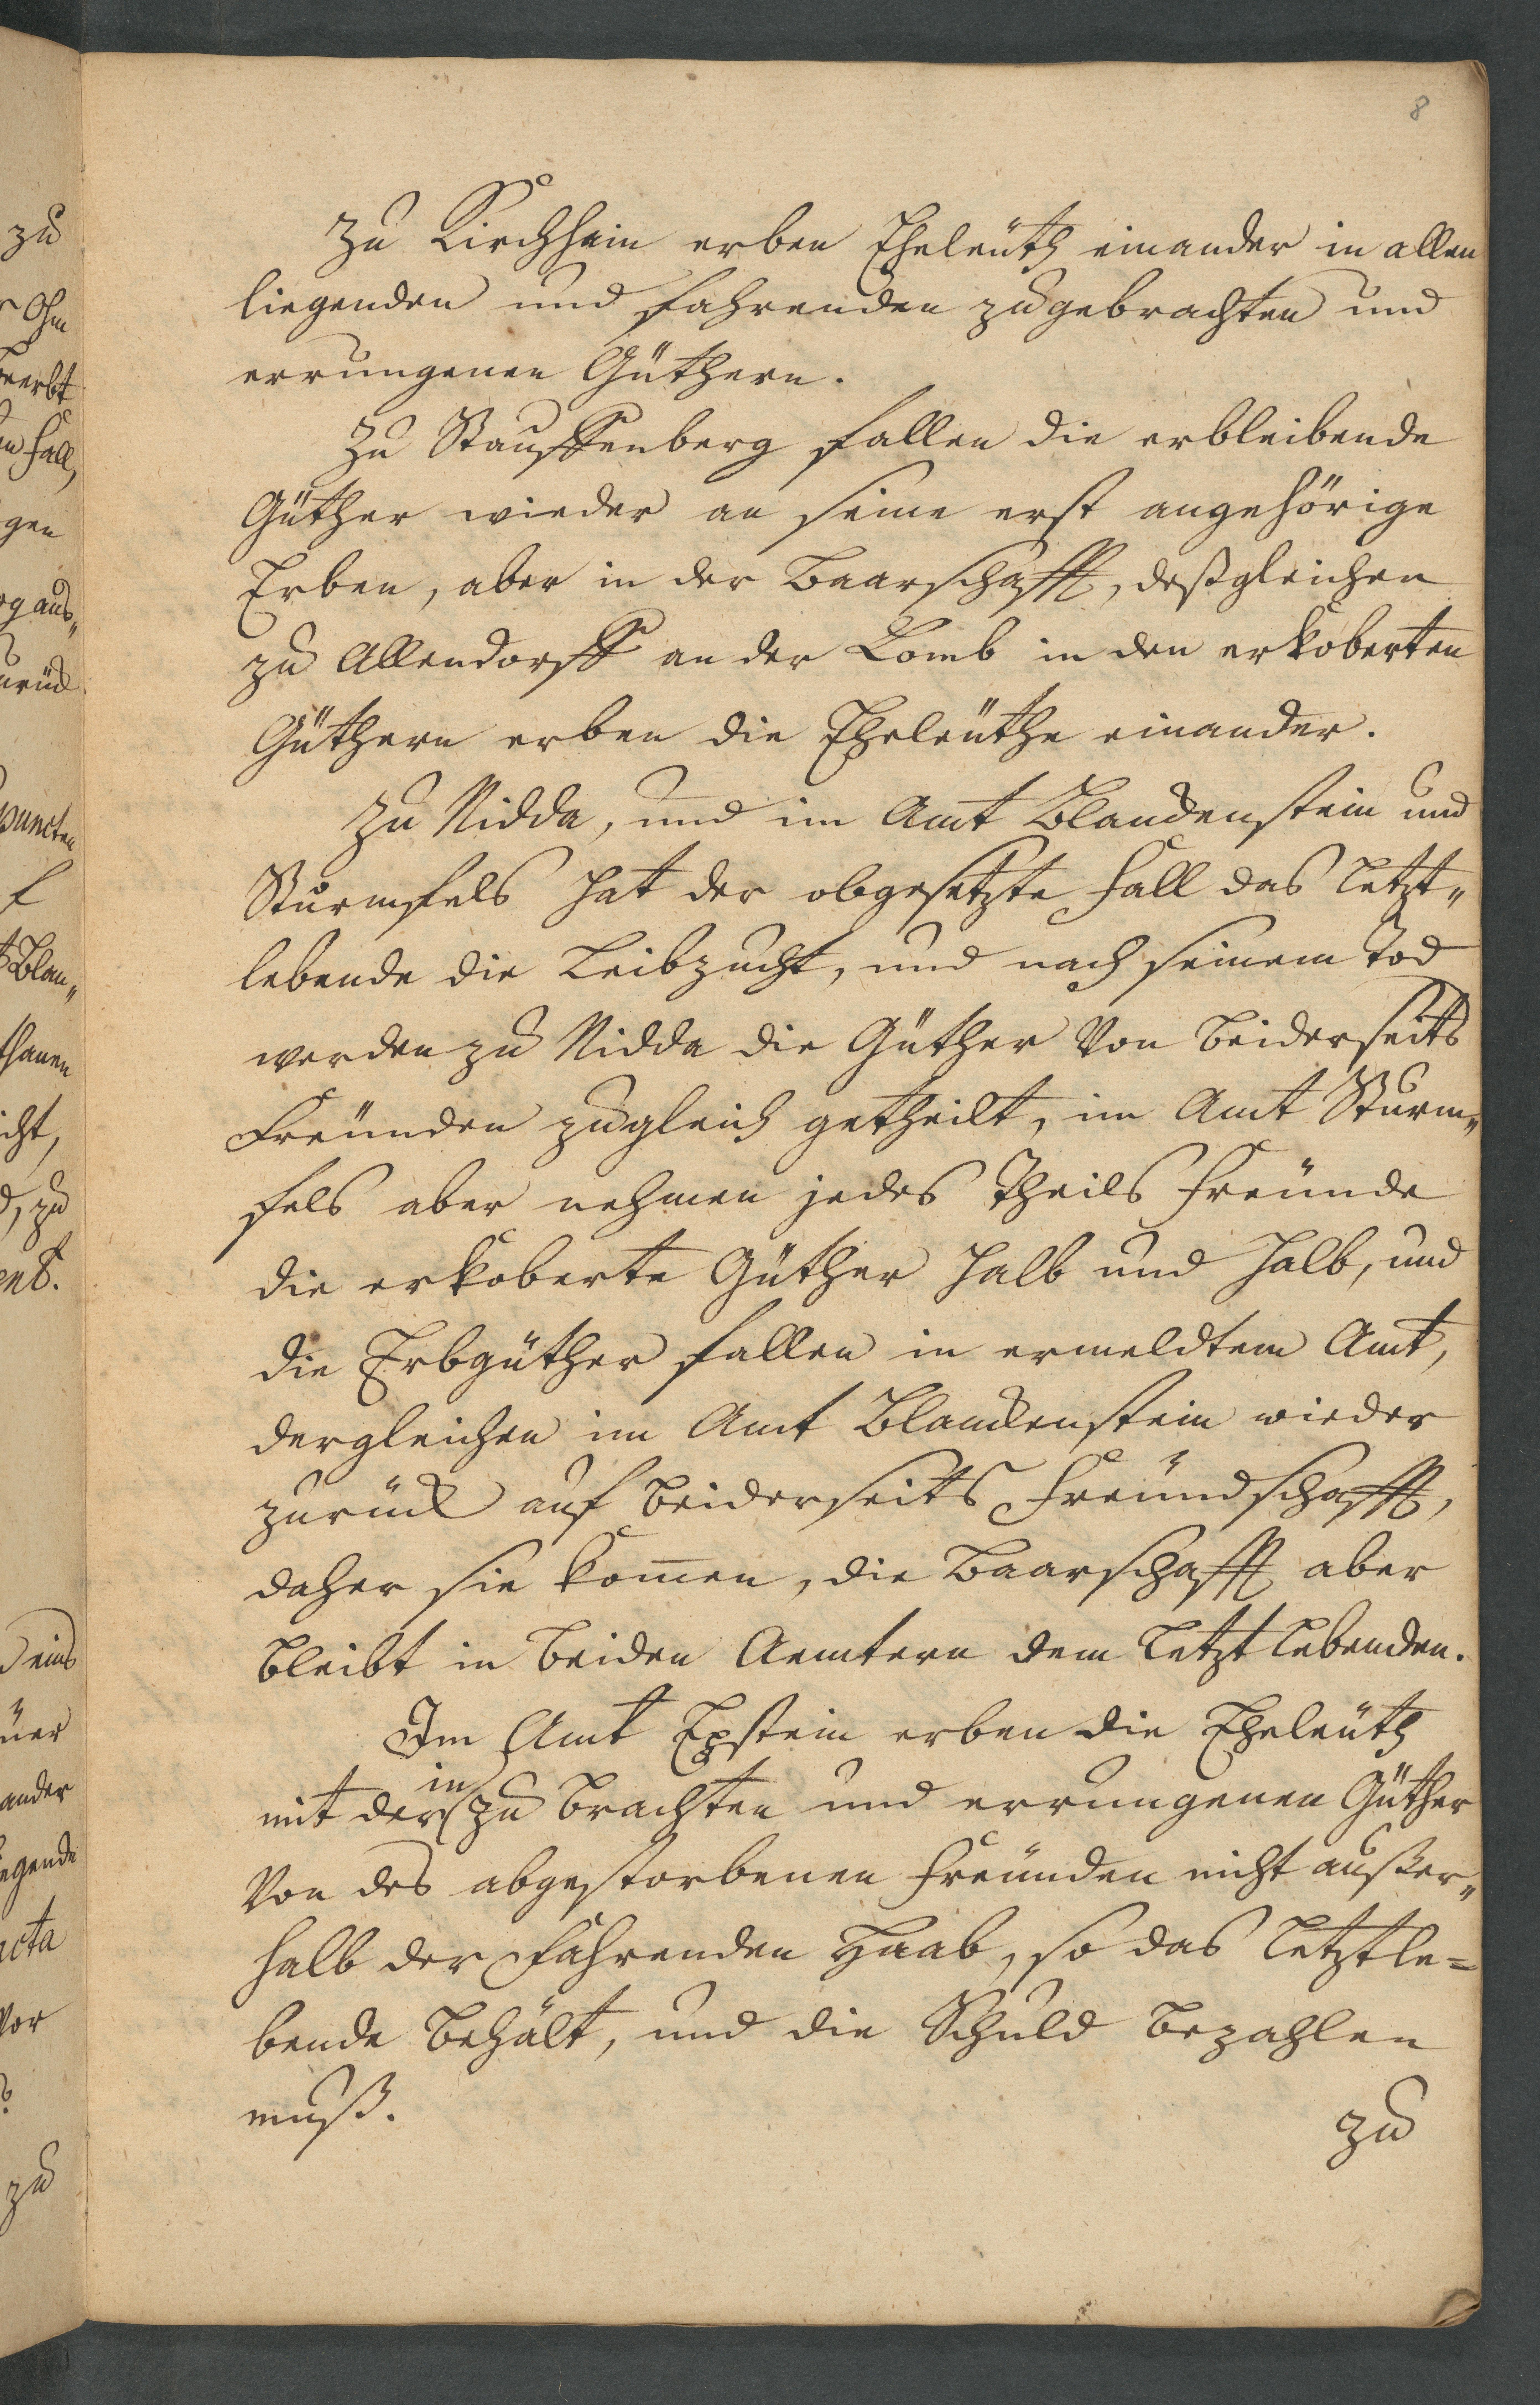 8
Zu Kirchhain erben Eheleüth einander in allen
liegenden und fahrenden zugebrachten und
errungenen Güthern.
Zu Stauffenberg fallen die erbleibende
Güther wieder an seine erst angehörige
Erben, aber in der Baarschafft, deßgleichen
zu Allendorff an der Lomb in den erkoberten
Güthern erben die Eheleüthe einander.
Zu Nidda, und im Amt Blanckenstein und
Sturmfels hat der obgesetzte Fall das letzt„
lebende die Leibzucht, und nach seinem Tod
werden zu Nidda die Güther von beiderseits
Freünden zugleich getheilt, im Amt Sturm„
fels aber nehmen jedes Theils Freünde
die erkoberte Güther halb und halb, und
die Erbgüther fallen in ermeldtem Amt,
dergleichen im Amt Blanckenstein wieder
zurück auf beiderseits Freündschafft,
daher sie kom̄en, die Baarschafft aber
bleibt in beiden Aemtern dem letzt lebenden.
Im Amt Epstein erben die Eheleüth
in
mit der zu brachten und errungenen Güther
von des abgestorbenen Freünden nicht außer„
halb der Fahrenden Haab, so das letztle=
bende behält, und die Schuld bezahlen
muß.
zu